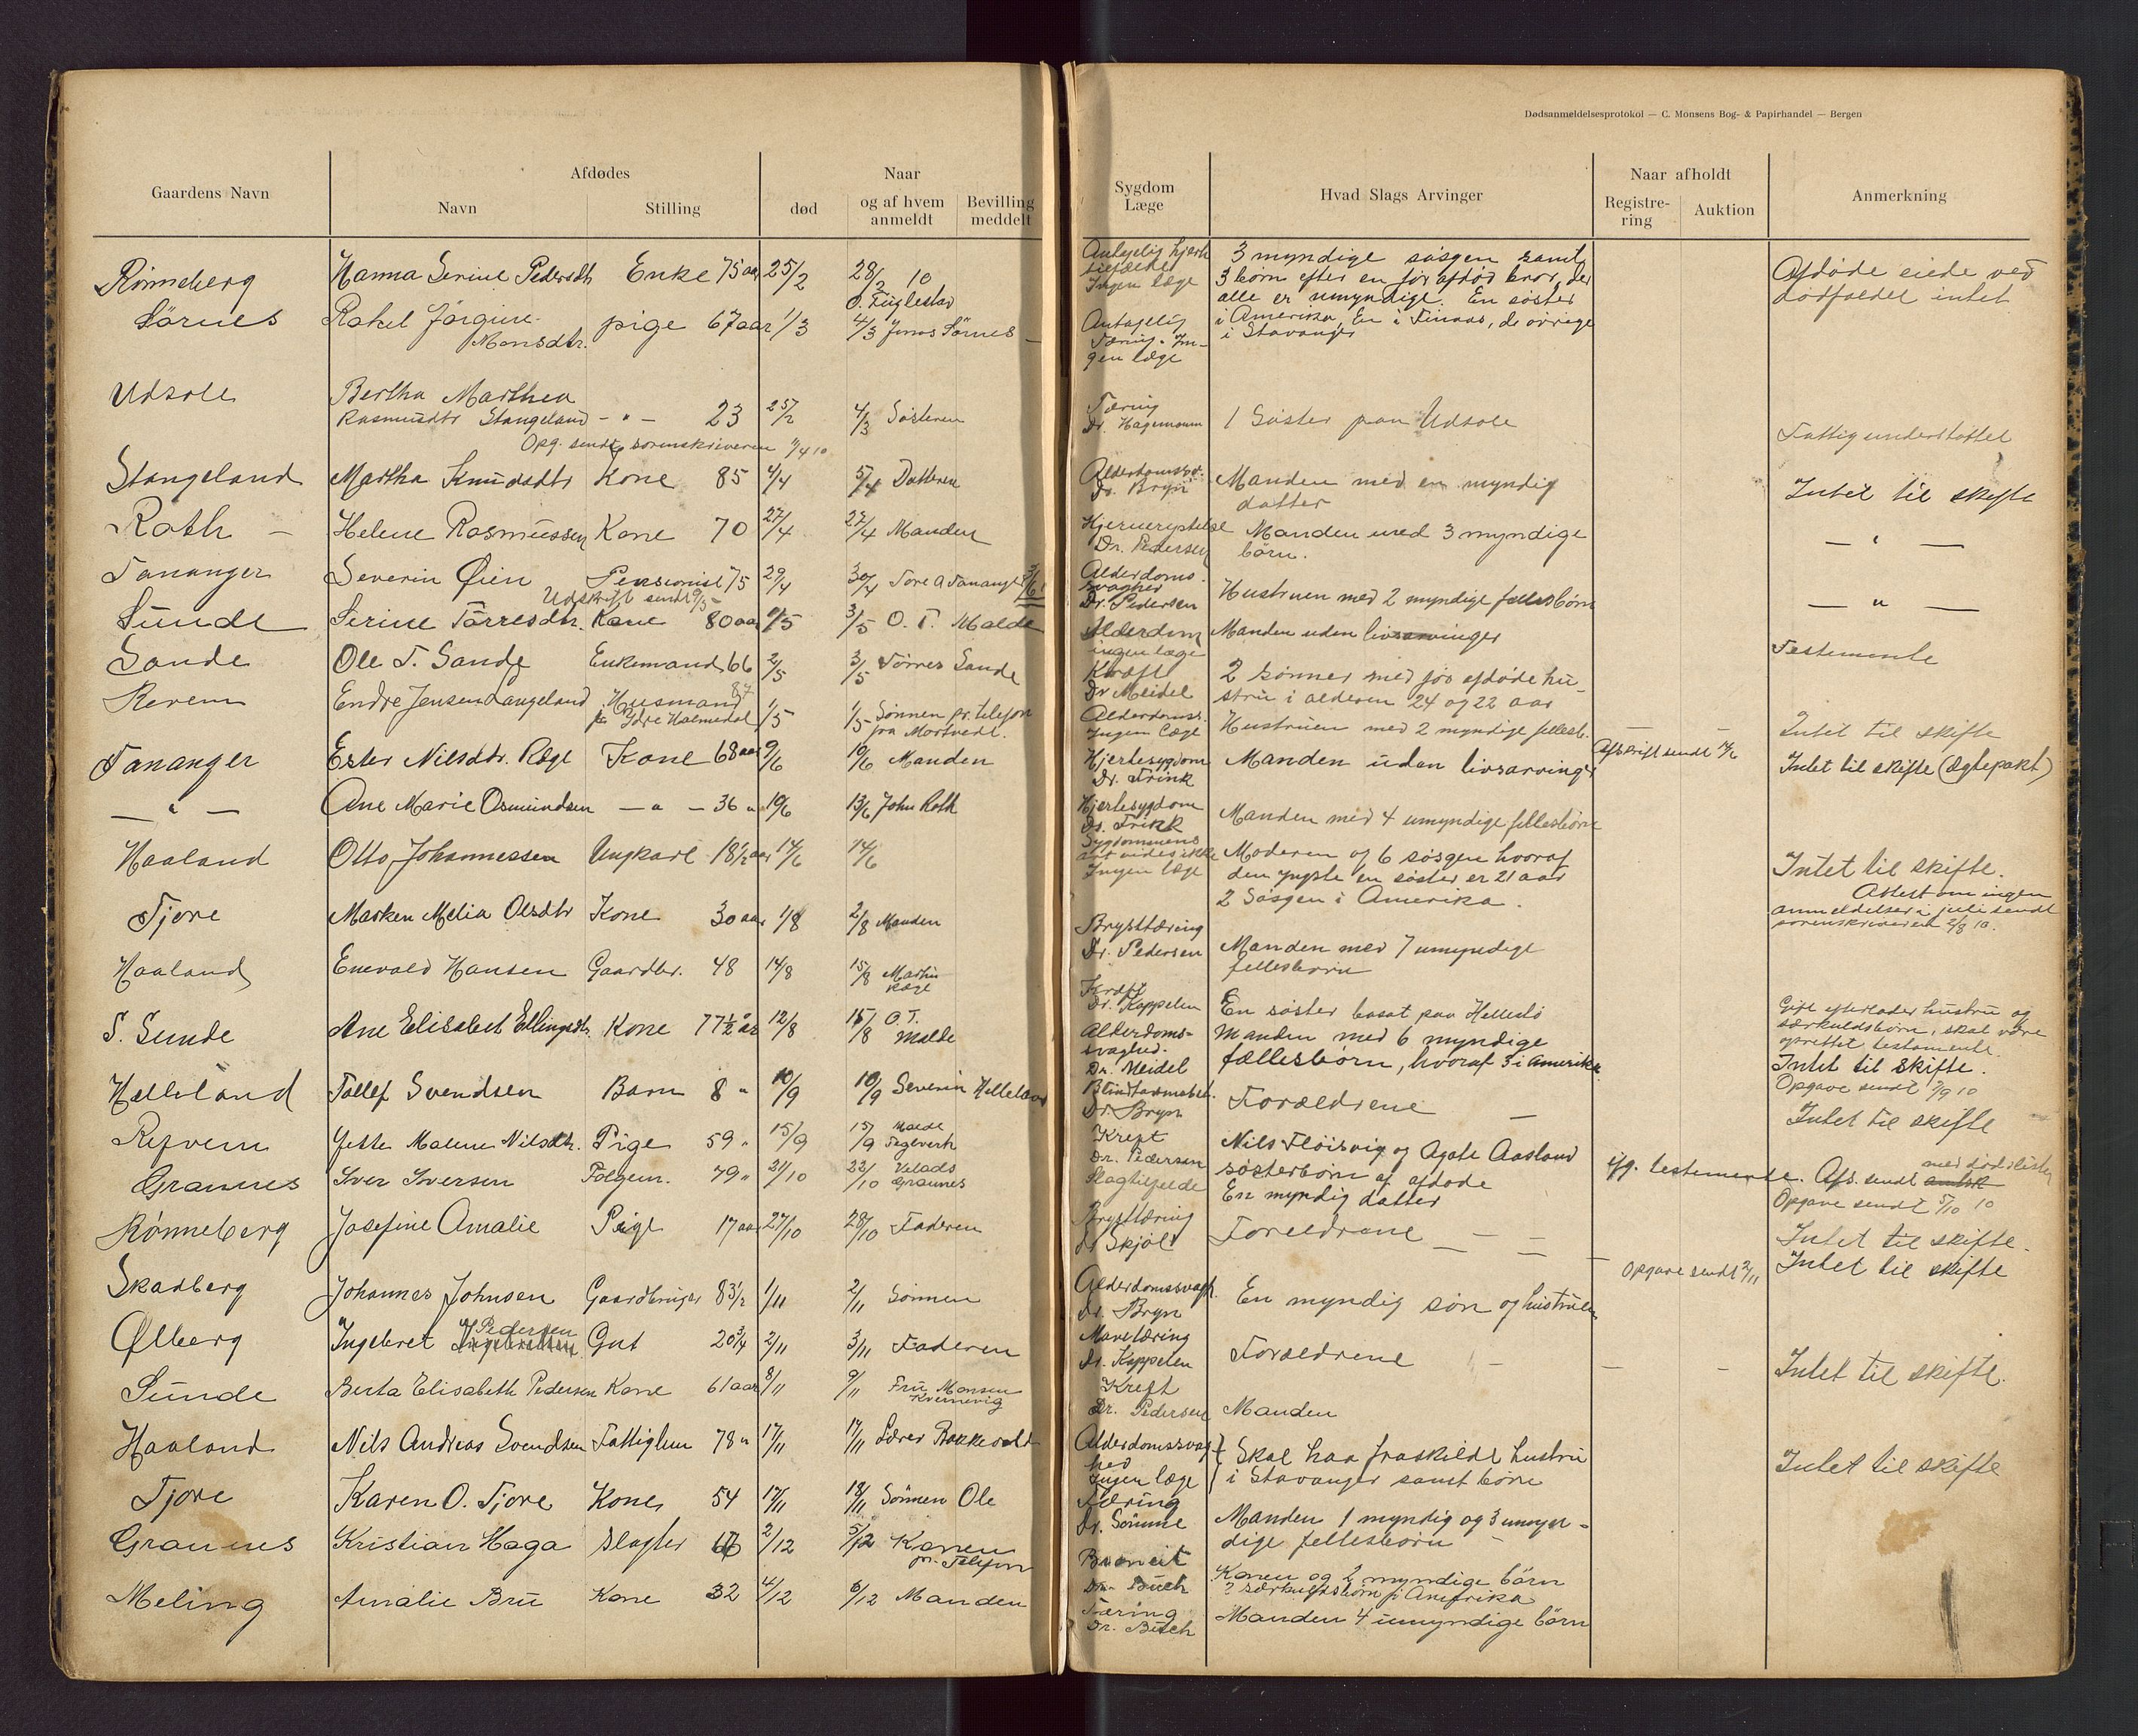 Dødsanmeldelsesprotokol — C. Monsens Bog- & Papirhandel — Bergen
Gaardens Navn
Afdødes
Navn
Stilling
Naar
død
og af hvem anmeldt
Bevilling meddelt
Sygdom Læge
Hvad Slags Arvinger
Naar afholdt
Registrering
Auktion
Anmerkning
Rönneberg Hanna Serine Pedersdtr Enke 75 aar 25/2 28/2 10
O. Fuglestad
Sörnes Rakel Jörgine Monsdtr. pige 67 aar 1/3 4/3 Jonas Sörnes
Udsole Bertha Marthea
Rasmusdtr Stangeland - " - 23 25/2 4/3 Søsteren
Opg. sendt sorenskriveren 11/4 10
Stangeland Martha Knudsdtr Kone 85 4/4 5/4 Datteren
Roth Helene Rasmussen Kone 70 27/4 27/4 Manden
Tananger Severin Øien Pensionist 75 29/4 30/4 Tore A Tananger
Udskrift sendt 9/5
Sunde Serine Tørresdtr. Kone 80 aar 1/5 3/5 O. T. Malde
Sande Ole T. Sande Enkemand 66 2/5 3/5 Tørres Sande
Revem Endre Jensen Langeland Husmand 87 1/5 1/5 Sønnen pr. telefon
fra Ydre Holmedal fra Mortvedt.
Tananger Ester Nilsdtr. Ræge Kone 68 aar 9/6 10/6 Manden
— " — Ane Marie Osmundsen — " — 36 " 10/6 13/6 John Roth
Haaland Otto Johannessen Ungkarl 18½ aar 14/6 14/6
Tjore Marken Melia Olsdtr Kone 30 aar 1/8 2/8 Manden
Haaland Enevald Hansen Gaardbr. 48 14/8 15/8 Martin Ræge
S. Sunde Ane Elisabet Ellingsdtr. Kone 77½ år 12/8 15/8 O. T. Malde
Helleland Tollef Svendsen Barn 8 " 10/9 10/9 Severin Helleland
Refvem Jette Malene Nilsdtr. Pige 59 " 15/9 15/9 Malde Teglverk
Grannes Iver Iversen Folgem. 79 " 21/10 22/10 Velads Grannes
Rønneberg Josefine Amalie Pige 17 aar 27/10 28/10 Faderen
Skadberg Johannes Johnsen Gaardbruger 83½ 1/11 2/11 Sønnen
Ølberg Ingebret Pedersen Gut 20¾ 2/11 3/11 Faderen
Sunde Berta Elisabeth Pedersen Kone 61 aar 8/11 9/11 Fru Monsen Kvernevig
Haaland Nils Andreas Svendsen Fattiglem 78 " 17/11 17/11 Lærer Rokkevold
Tjore Karen O. Tjore Kone 54 17/11 18/11 Sönnen Ole
Grannes Kristian Haga slagter 2/12 5/12 Konen pr. Telefon
Meling Amalie Bru Kone 32 4/12 6/12 Manden
Antagelig hjerte
Ingen læge
3 myndige søsgen samt
3 børn efter en før afdød bror, der
alle er umyndige. En søster
i Amerika, En i Finaas, de øvrige
i Stavanger
Afdøde eiede ved
dødfaldet intet
Antagelig
Tæring. Ingen læge
Tæring
Dr. Hagemann 1 Søster paa Udsole Fattigunderstøttet
Dr. Bryn Manden med en myndig
datter Intet til skifte
Hjernerystelse
Dr. Pedersen Manden med 3 myndige
børn. — " —
Alderdomssvaghed
Dr. Pedersen Hustruen med 2 myndige fellesbørn — " —
Alderdom
ingen læge Manden uden livsarvinger Testemente
Kræft
Dr Meidel 2 sønner med før afdøde hustru i alderen 24 og 22 aar
Alderdomss.
Ingen læge Hustruen med 2 myndige fellesb. Intet til skifte
Hjertesygdom
Dr. Frink Manden uden livsarvinger Afskrift sendt Intet til skifte (Ægtepakt)
Hjertesygdom
Manden med 4 umyndige fellesbørn
Sygdommens
art vides ikke
Ingen læge Moderen og 6 søsgen hvoraf
den yngste en søster er 21 aar
2 Søsgen i Amerika. Intet til skifte.
Attest om ingen
anmeldelser i juli sendt
sorenskriveren 2/8 10.
Brysttæring
Dr. Pedersen Manden med 7 umyndige
fellesbørn
Kræft
Dr. Kappelen En søster bosat paa Hellestø
Gift efterlader hustru og
særkuldsbørn, skal være
oprettet testamente.
Alderdomssvaghed.
Dr. Meidel Manden med 6 myndige
fællesbørn, hvoraf 3 i Amerika. Intet til skifte.
Opgave sendt 7/9 10
Dr Bryn Forældrene — Intet til skifte
Kreft
Dr. Pedersen Nils Fløisvig og Agate Aasland
søsterbørn af afdøde ifg. testemente. Afs. sendt med dødsliste
Slagtilfelde En myndig datter Opgave sendt 5/10 10
Brysttæring
Dr Skjöl Foreldrene Intet til skifte.
Alderdomssvagh.
Dr. Bryn En myndig søn og hustruen Opgave sendt 2/11 Intet til skifte
Mavetæring
Dr. Kappelen Forældrene Intet til skifte.
Kreft
Dr. Pedersen Manden
Alderdomssvaghed
Ingen læge Skal haa fraskildt hustru
i Stavanger samt børn Intet til skifte
Tæring
Dr. Sömme Manden 1 myndig og 3 umyndige fellesbørn
Konen og 2 myndige børn
2 særkuldsbørn i Amerika
Tæring
Manden 4 umyndige börn